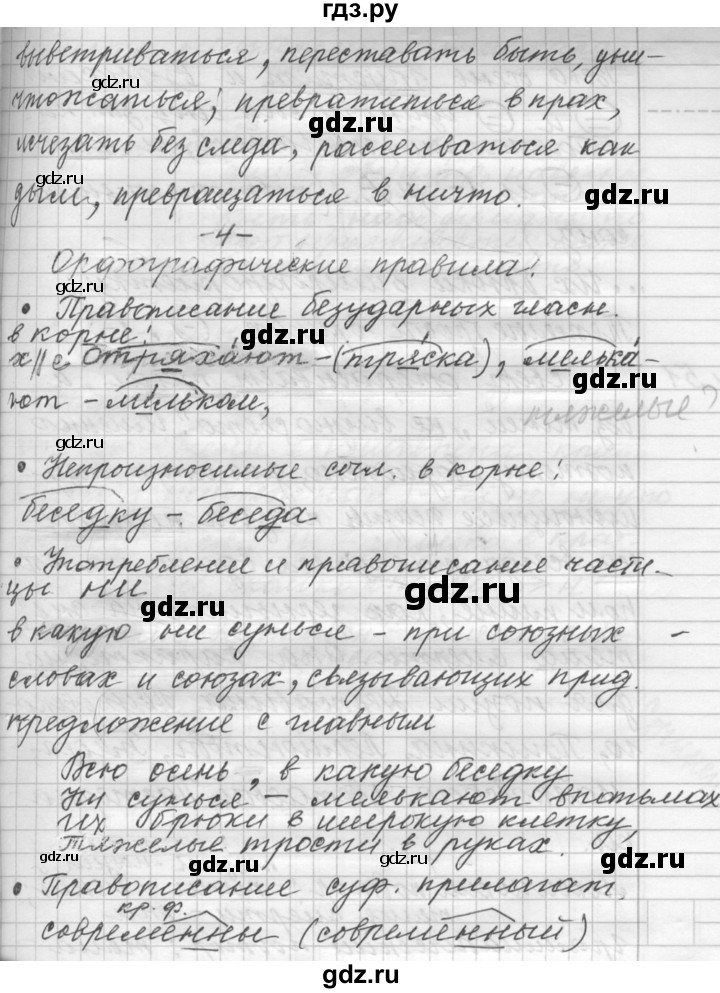 гдз.ру
выветриваться, переставать быть, уни-
чтожаться; превратиться в прах,
gdz.ru
исчезать без следа, рассеиваться как
gdz.ru
дым, превращаться в ничто.
gdz.ru
-4-
Орфографические правила:
gdz.ru
• Правописание безударных гласн.
в корне:
gdz.ru
х||с отряхают - (тряска), мелька-
ют - мельком,
тяжелые
gdz.ru
• Непроизносимые согл. в корне:
gdz.ru
беседку - беседа
• Употребление и правописание части-
цы ни
gdz.ru
gdz.ru
в какую ни сунься - при союзных -
словах и союзах, связывающих прид.
предложение с главным
Всю осень, в какую беседку
ни сунься - мелькают впотьмах
их брюки в широкую клетку,
тяжелые трости в руках.
gdz.ru
gdz.ru
• Правописание суф. прилагат.
кр. ф.
современны (современный)
gdz.ru